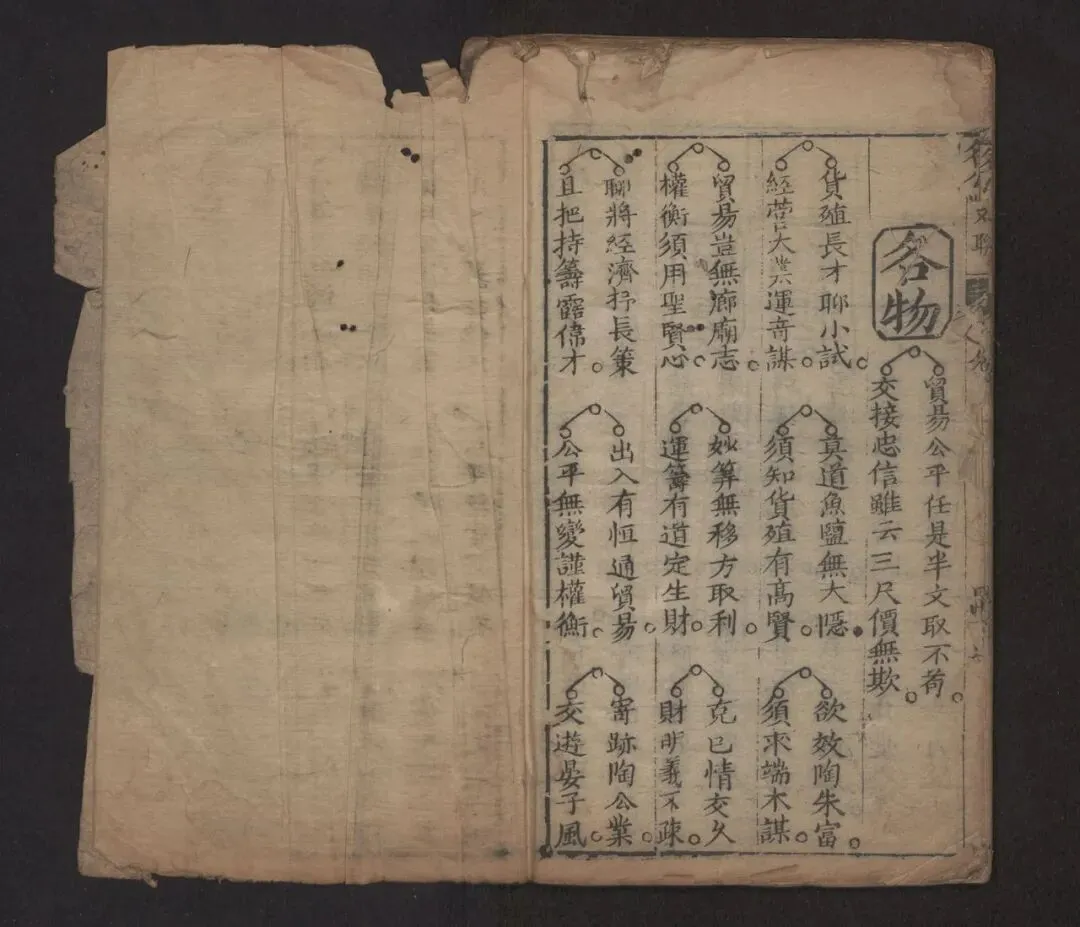 各物
貿昜公平任是半文取不荷
交接忠信雖云三尺價無欺
貨殖長才聊小試
經营大業運竒謀
莫道魚鹽無大隱
須知貨殖有高賢
欲效陶朱富
須來端木謀
貿昜豈無廊廟志
權衡須用聖賢心
妙筭無移方取利
運籌有道定生財
克己情交久
財明義不疎
聊將經濟抒長策
且把持籌露偉才
出入有恒通貿昜
公平無變謹權衡
寄跡陶公業
交遊晏子風